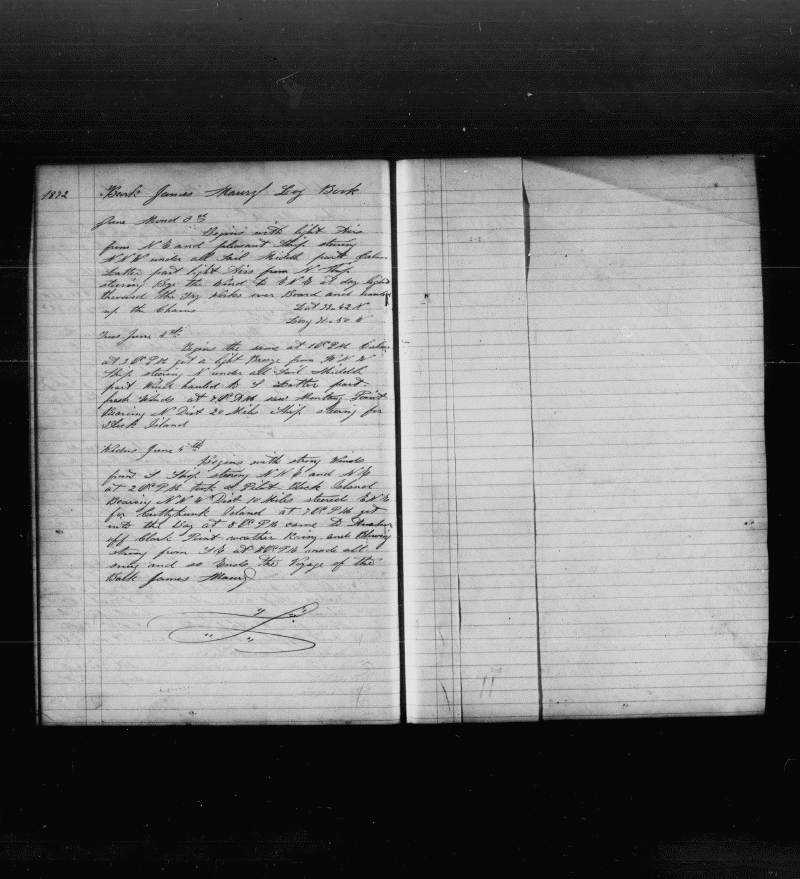 1872 Bark James Maury Log Book
June Mond 3rd
Begins with light Airs
from N E and pleasant Ship steering
N N W under all Sail Middle part Calm
Latter part light Airs from N Ship
steering by the Wind to E N E at day light
throwed the Try works over Board and hauled
up the Chains Lat
Long
Tues June 4th
Begins the same at 1 Oc P M Calm
at 3 Oc P M got a light Breeze from W S W
Ship steering N under all Sail Middle
part Wind hauled to S Latter part
fresh Winds at Oc A M saw Montaug Point
Bearing N Dist 20 Mile Ship steering for
Block Island
Wednes June 5th
Begins with strong Winds
from S Ship steering N N E and N E
at 2 Oc P M took a Pilot Block Island
Bearing N N W Dist 10 Miles steered E N E
for Cuttyhunk Island at 7 Oc P M got
into the Bay at 8 Oc P M came to Anchor
off Clark Point weather Rainy and Blowing
strong from S E at Oc P M made all
snug and so Ends the Voyage of the
Bark James Maury